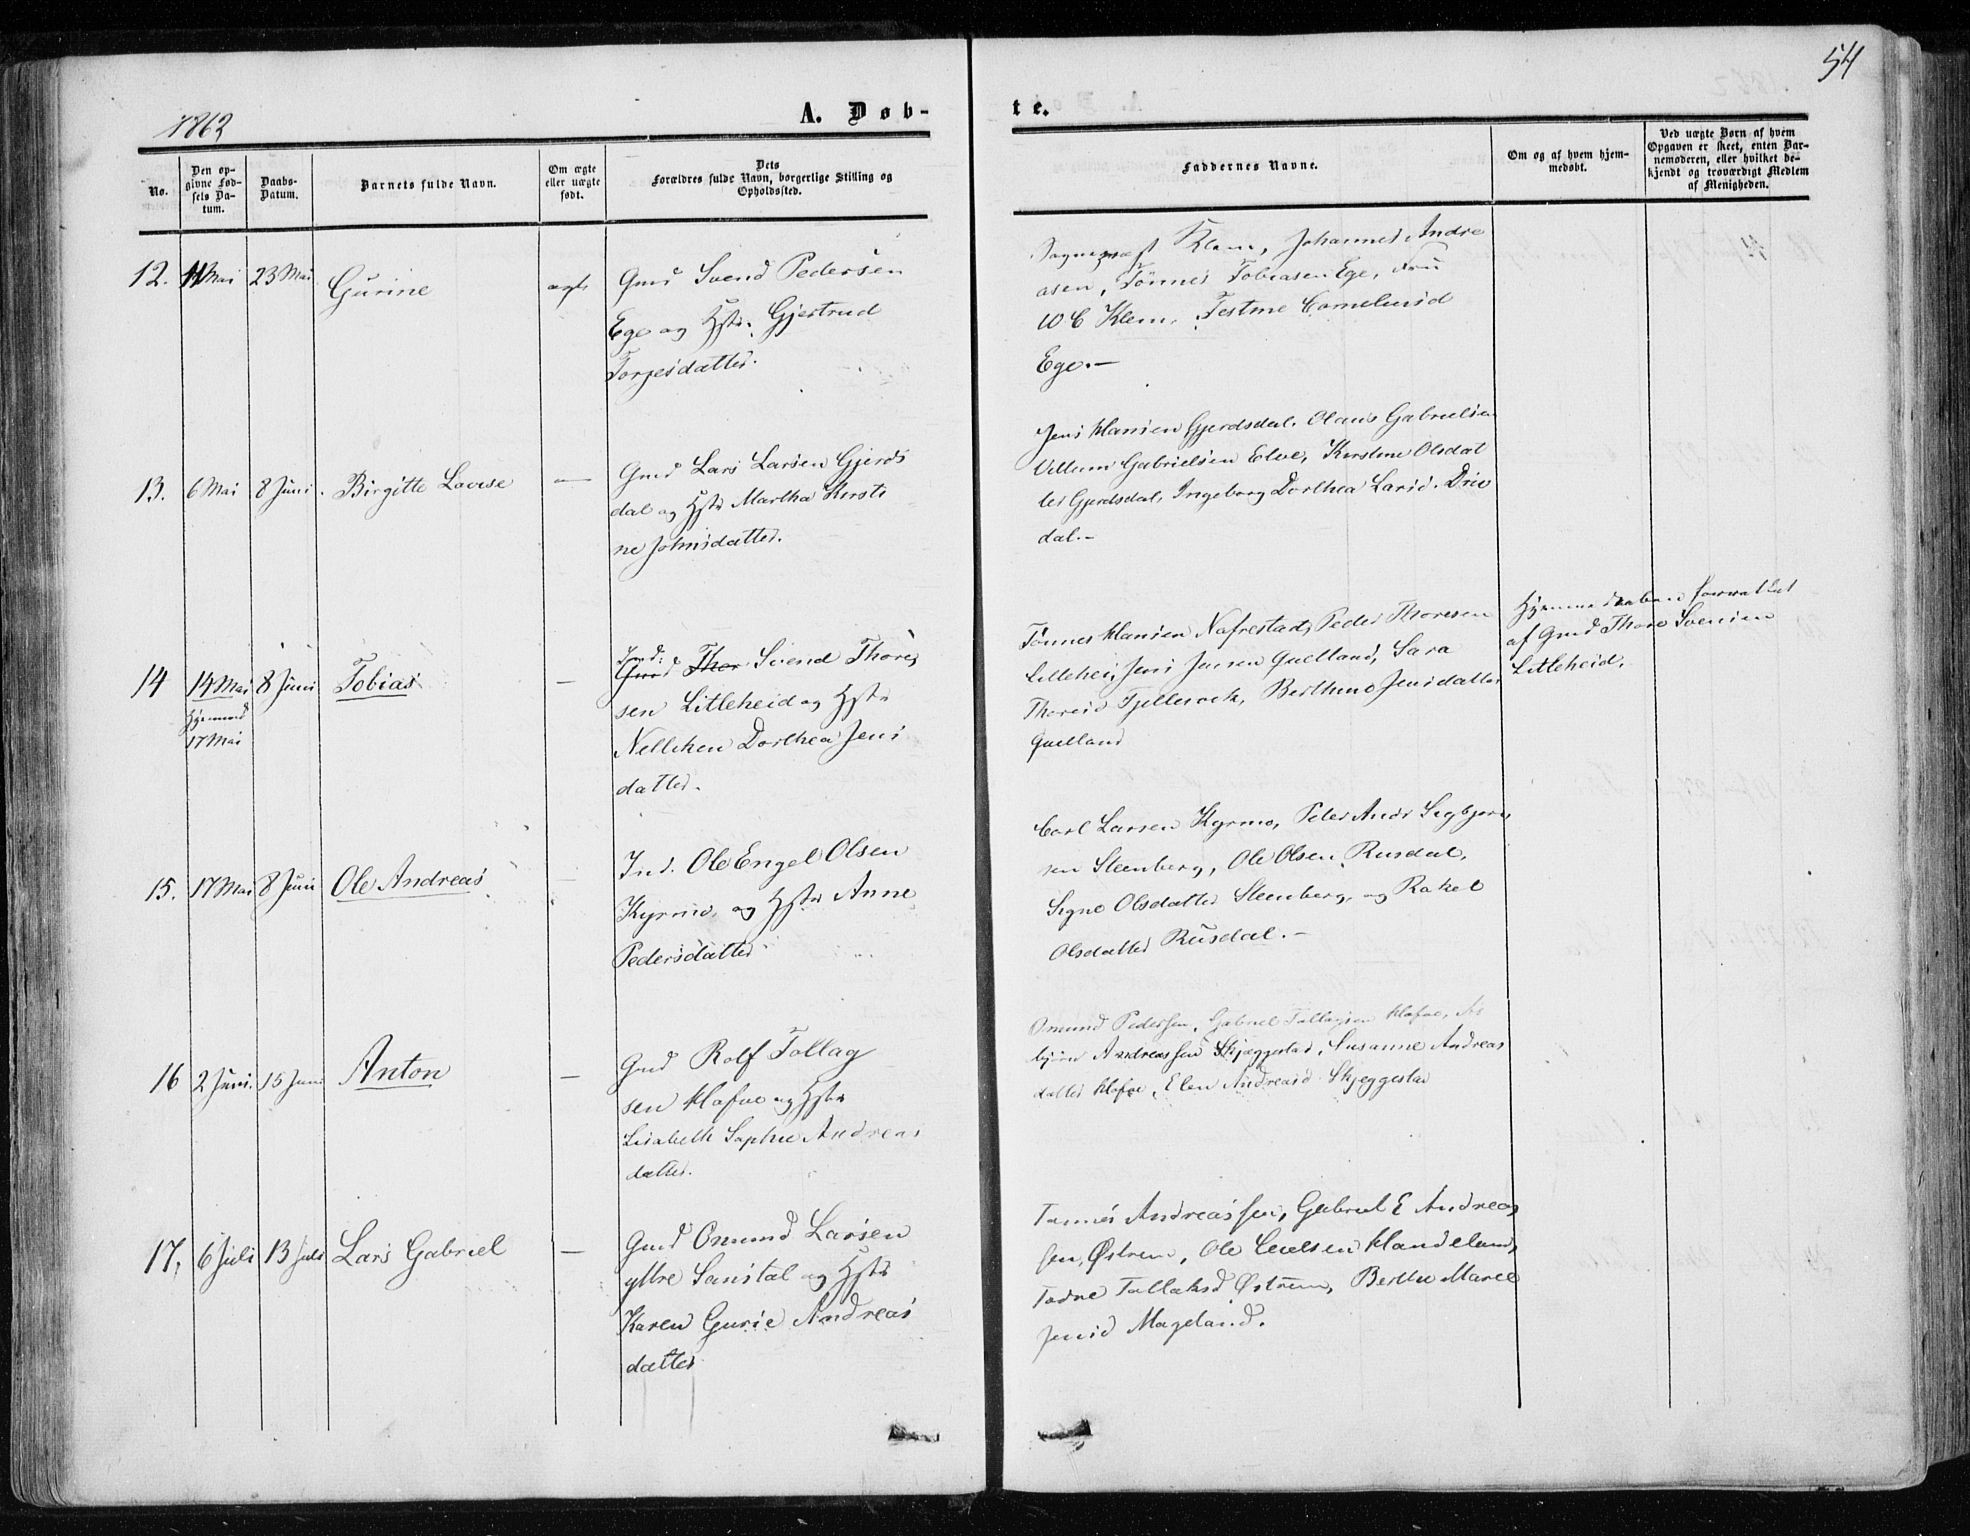 54
1862
A. Døb-
te.
No.
Den op-
givne Fød-
sels Da-
tum.
Daabs-
Datum.
Barnets fulde Navn.
Om ægte
eller uægte
født.
Dets
Forældres fulde Navn, borgerlige Stilling og
Opholdssted.
Faddernes Navne.
Om og af hvem hjem-
medøbt.
Ved uægte Børn af hvem
Opgaven er skeet, enten Bar-
nemoderen, eller hvilket be-
kjendt og troværdigt Medlem
af Menigheden.
12. 11 Mai 23 Mai Gurine ægte
Gmd Svend Pedersen
Ege og Hstr. Gjertrud
Torjesdatter.
Klem, Johannes Andre
asen, Tönnes Tobiasen Ege, Fru
W C Klem, Corneliusd
Ege.—
13. 6 Mai 8 Juni. Birgitte Lovise —
Gmd Lars Larsen Gjerds
dal og Hstr Martha Kirsti
ne Johnsdatter.
Jens Hansen Gjerdsdal. Olaus Gabrielsen
Villum Gabrielsen Elve, Kirstine Olsdat
ter Gjerdsdal, Ingeborg Dorthea Larsd. Drie
dal.—
14 14 Mai 8 Juni Tobias —
Hjemmed
17 Mai
Ind:
Gmd Thor Svend Thores
sen Litleheid og Hstr
Nellken Dorthea Jens
datter.
Tönnes Hansen Nafrestad, Peder Thoresen
Lillehei, Jens Jensen Quelland, Sara
Thoresd Fjellesock, Berthine Jensdatter
Quelland
Hjemmedaaben forrettet
af Gmd Thore Svensen
Litleheid.
15. 17 Mai 8 Juni Ole Andreas —
Ind. Ole Engel Olsen
Kyrmo, og Hstr Anne
Pedersdatter
Carl Larsen Kyrmo, Peder Andr Sigbjörn
sen Steenberg, Ole Olsen Rusdal,
Signe Olsdatter Steenberg, og Rakel
Olsdatter Rusdal.—
16 2 Juni. 15 Juni Anton —
Gmd Rolf Tollag
sen Hafoe og Hstr
Lisabeth Sophie Andreas
datter.
Omund Pedersen, Gabriel Tollagsen Hafoe, As
björn Andreassen Skjeggestad, Susanne Andreas
datter Hafoe, Elen Andreasd. Skjeggestad
17. 6 Juli 13 Juli Lars Gabriel —
Gmd Omund Larsen
yttre Sanstøl og Hstr
Karen Gurie Andreas
datter
Tönnes Andreassen, Gabriel E Andreas
sen, Østrem, Ole Handeland,
Tollaksd Østrem, Berthe Marie
Jensd Mageland.